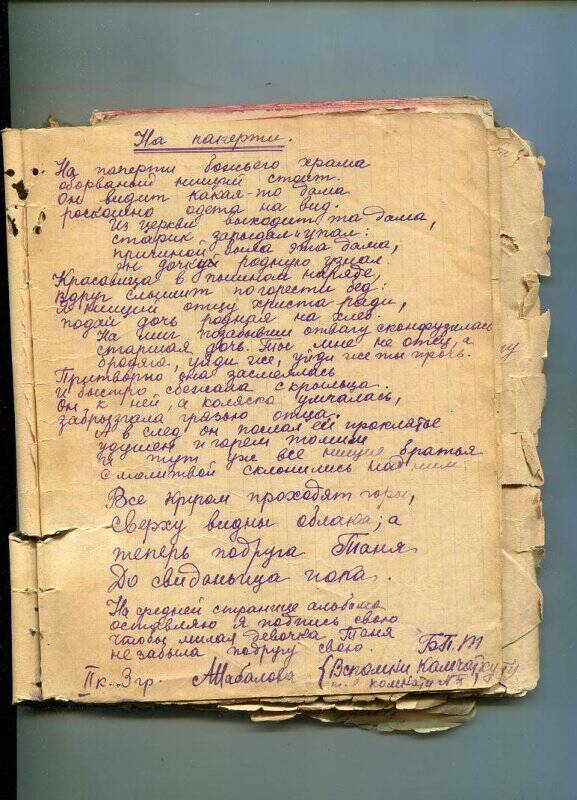 На паперти.
На паперти божьего храма
оборваный нищий стоит.
Он видит какая-то дама
роскошно одета на вид.
Из церкви выходит та дама,
старик зарыдал и упал:
причиной была эта дама,
он дочку родную узнал.
Красавица в пышном наряде,
Вдруг слышит погорести бед:
Я нищий отец христа ради,
подай дочь родная на хлеб.
На миг позабывши отвагу сконфузилась
старшая дочь. Ты мне не отец, а
бродяга, уйди же, уйди же ты прочь.
Притворно она засмеялась
и быстро сбежала с крыльца.
Он к ней, а коляска умчалась,
забрызгала грязью отца.
А в след он послал ей проклятье
удушен и горем томим
а тут уже все нищие братья
с молитвой склонились над ним.
Все кругом проходят горы,
сверху видны облака; а
теперь подруга Таня
До свиданьица пока.
На средней странице альбома
оставляю я подпись свою
чтобы милая девочка Таня
не забыла подругу свою. Б.П.Т
IIк. 3 гр. Шабалова {Вспомни Камчатку
комнату